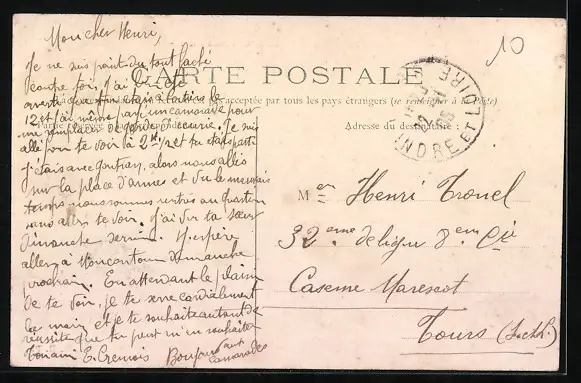 Mon cher Henri,
Je ne suis point du tout fâché
contre toi, j'ai été
averti que ton étais à Tours le
12 et j'ai même pas un camarade pour
me remplacer de garde d'écurie. Je suis
allé pour te voir à 2h 1/2 et tu étais parti
j'étais avec Gontran, alors nous allés
sur la place d'armes et vu le mauvais
temps nous sommes rentrés au quartier
sans aller te voir. J'ai vu ta sœur
dimanche dernier. J'espère
aller à Moncontour dimanche
prochain. En attendant le plaisir
de te voir, je te serre cordialement
la main et je te souhaite autant de
réussite que tu peux m'en souhaiter
E. Cremois Bonjour aux camarades
CARTE POSTALE
acceptée par tous les pays étrangers (se renseigner à la Poste)
Adresse du destinataire
INDRE ET LOIRE
10
Mr Henri Tronel
32eme de ligne 8em Cie
Caserne Marescot
Tours (I.-et-L.)